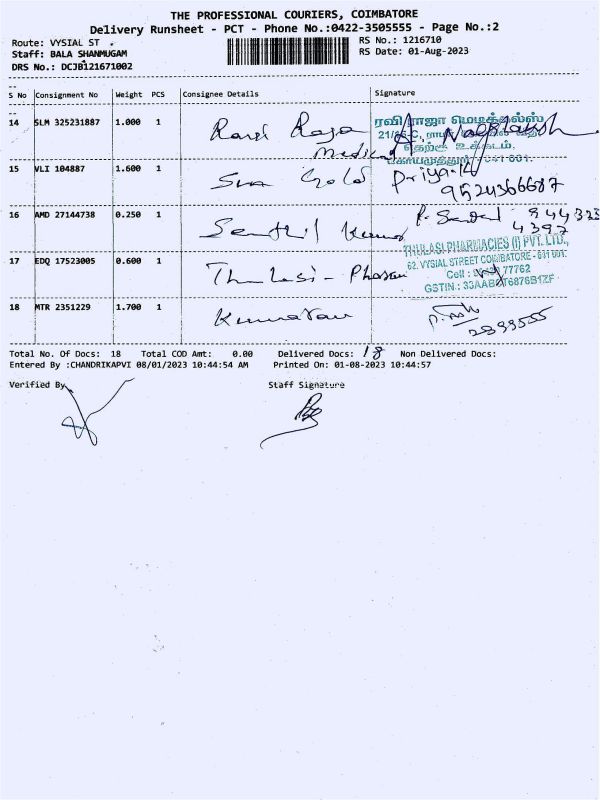 THE PROFESSIONAL COURIERS, COIMBATORE
Delivery Runsheet - PCT - Phone No.:0422-3505555 - Page No.:2
Route: VYSIAL ST
RS No.: 1216710
Staff: BALA SHANMUGAM
RS Date: 01-Aug-2023
DRS No.: DCJB121671002
S No Consignment No Weight PCS Consignee Details Signature
14 SLM 325231887 1.000 1 Ravi Raja Medical
ரவி ராஜா மெடிக்கல்ஸ்
உக்கடம்,
15 VLI 104887 1.600 1 Sun Gold Priya.K
9524366687
16 AMD 27144738 0.250 1 Senthil Kumar
944323
4397
17 EDQ 17523005 0.600 1 Thulasi - Pharam
THULASI PHARMACIES (I) PVT. LTD.,
62, VYSIAL STREET COIMBATORE - 641 001.
Cell : 77762
GSTIN.:
18 MTR 2351229 1.700 1 Kumaran
2899555
Total No. Of Docs: 18 Total COD Amt: 0.00 Delivered Docs: 18 Non Delivered Docs:
Entered By :CHANDRIKAPVI 08/01/2023 10:44:54 AM Printed On: 01-08-2023 10:44:57
Verified By Staff Signature